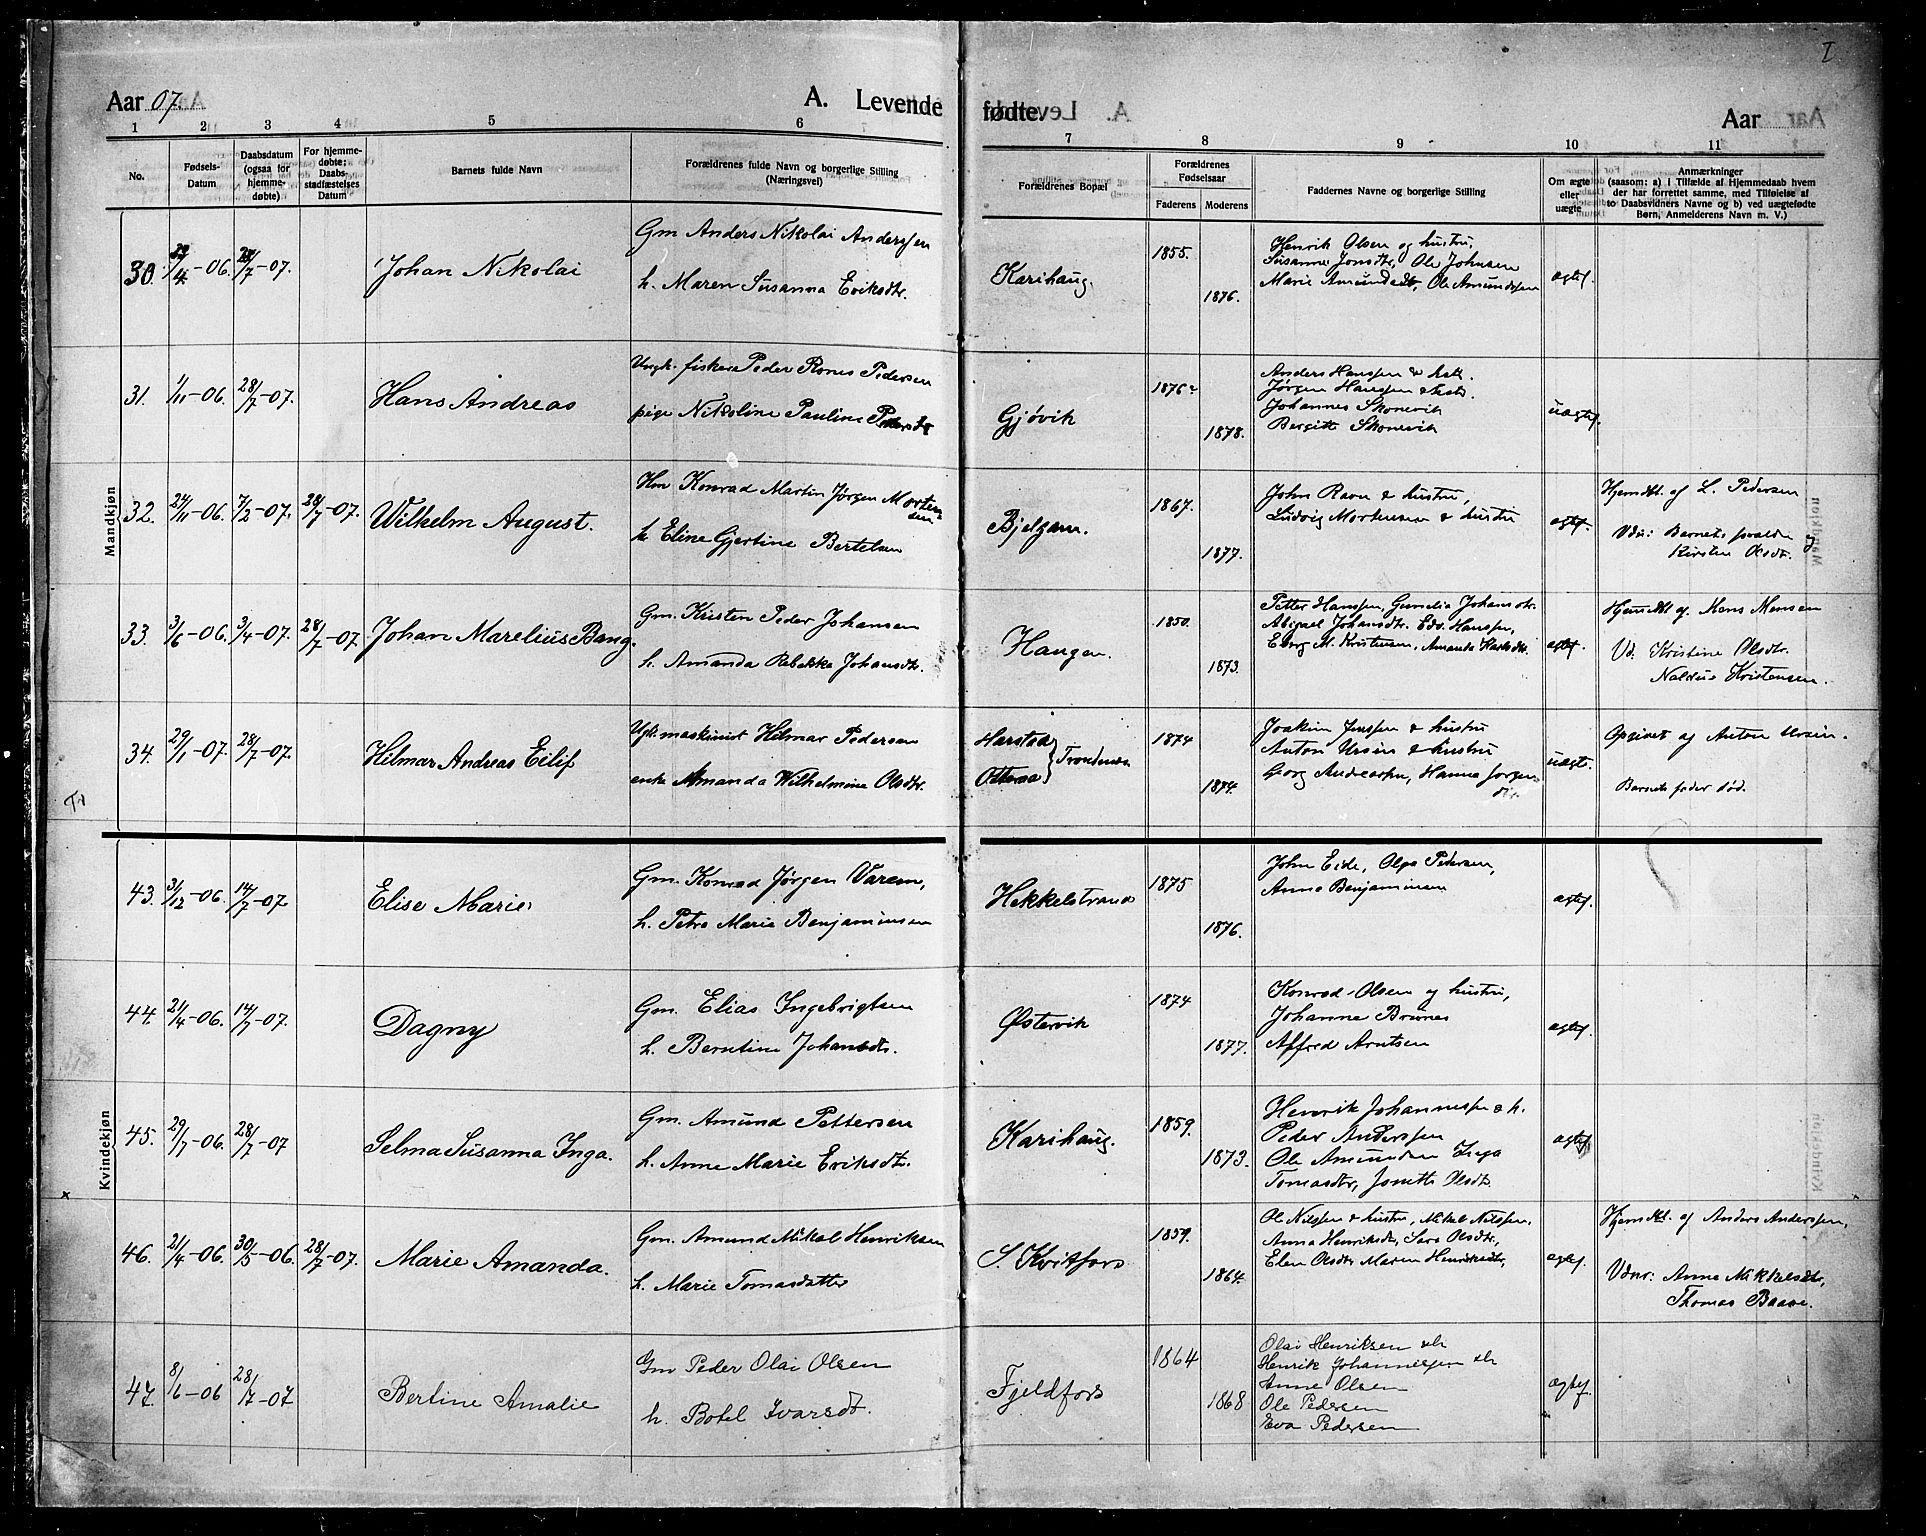 I
Aar 07.
A. Levende
fødte.
Aar
1 2 3 4 5 6 7 8 9 10 11
No.
Fødsels-
Datum
Daabsdatum
(ogsaa for
hjemme-
døbte)
For hjemme-
døbte:
Daabs-
stadfæstelses
Datum
Barnets fulde Navn
Forældrenes fulde Navn og borgerlige Stilling
(Næringsvei)
Forældrenes Bopæl
Forældrenes
Fødselsaar
Faderens Moderens
Faddernes Navne og borgerlige Stilling
Om ægte
eller
uægte
Anmærkninger
(saasom: a) i Tilfælde af Hjemmedaab hvem
der har forrettet samme, med Tilføielse af
to Daabsvidners Navne og b) ved uægtefødte
Børn, Anmelderens Navn m. V.)
Mandkjøn
30. /4-06. 28/7-07. Johan Nikolai
Gm Anders Nikolai Anderssen
h. Maren Susanna Eriksdtr.
Karihaug.
1855.
1876.
Henrik Olsen og hustru,
Susanne Jonsdtr, Ole Johnsen
Marie Amundsdtr, Ole Amundssen
ægtef.
31. 1/11-06. 28/7-07. Hans Andreas
Ungk. fisker Peder Rones Pedersen
pige Nikoline Pauline Pedersdtr
Gjøvik
1876
1878.
Anders Hanssen &
Jørgen Hanssen &
Johannes Skonevik
Bergitte Skonevik
uægtef.
32. 24/11-06. 7/2-07. 28/7-07. Wilhelm August.
Hm Konrad Martin Jørgen Morten-
sen
h. Eline Gjertine Bertelsen
1867.
1877.
John Ravn & hustru,
Ludvig Mortensen & hustru
ægtef.
Hjemdbt. af L. Pedersen
Vdn: Barnets forældre
Kirsten Olsdtr.
33. 3/6-06. 3/4-07. 28/7-07. Johan Marelius Bang.
Gm. Kristen Peder Johansen
h. Amanda Rebekka Johansdtr.
Haugen.
1850.
1873.
Petter Hanssen, Gunelia Johansdtr.
Abigael Johansdtr. Edv. Hanssen,
M. Kristensen, Amanda
ægtef.
Hjemdbt af. Mons Monsen
Vd. Kristine Olsdtr.
Kristensen.
34. 29/1-07. 28/7-07. Hilmar Andreas Eilif
Ugk. maskinist Hilmar Pedersen
enke Amanda Wilhelmine Olsdtr.
Harstad
Trondenes
1874
1874.
Joakim Jenssen & hustru
Anton Ursin & hustru
Georg Andreassen, Hanna Jørgen-
uægt.
Opgivet af Anton Ursin.
Barnets fader død.
Kvindekjøn
43. 3/12-06. 14/7-07. Elise Marie
Gm. Konrad Jørgen Varem,
h. Petra Marie Benjaminsen
Hekkelstrand
1875
1876.
John Eide, Olga Pedersen,
Anna Benjaminsen
ægtef.
44. 21/4-06. 14/7-07. Dagny
Gm. Elias Ingebrigtsen
h. Berntine Johansdtr.
Østervik
1874
1877.
Konrad Olsen og hustru,
Johanne Brunes
Alfred Arntsen
ægtef.
45. 29/7-06. 28/7-07 Selma Susanna Inga.
Gm. Amund Pettersen
h. Anne Marie Eriksdtr.
Karihaug.
1859.
1873.
Henrik Johannessen & h.
Peder Anderssen
Ole Amundsen Inga
Tomasdtr, Jonette Olsdtr.
ægtef
x
46. 21/4-06. 30/5-06. 28/7-07. Marie Amanda.
Gm. Amund Mikal Henriksen
h. Marie Tomasdatter
S. Kvitfors
1859.
1864.
Ole Nilssen & hustru, Mikal Nilssen,
Anna Henriksdtr, Sara Olsdtr,
Elen Olsdtr Maren Henriksdtr,
ægtef.
Hjemdbt. af Anders Anderssen,
Vdnr: Anne Mikkelsdtr,
Thomas Baave.
47. 8/6-06 28/7-07 Bertine Amalie
Gm Peder Olai Olsen
h. Botel Ivarsdt.
Fjeldfors
1864
1868
Olai Henriksen &h
Henrik Johannessen &h
Anne Olsen
Ole Pedersen
Eva Pedersen
ægtef